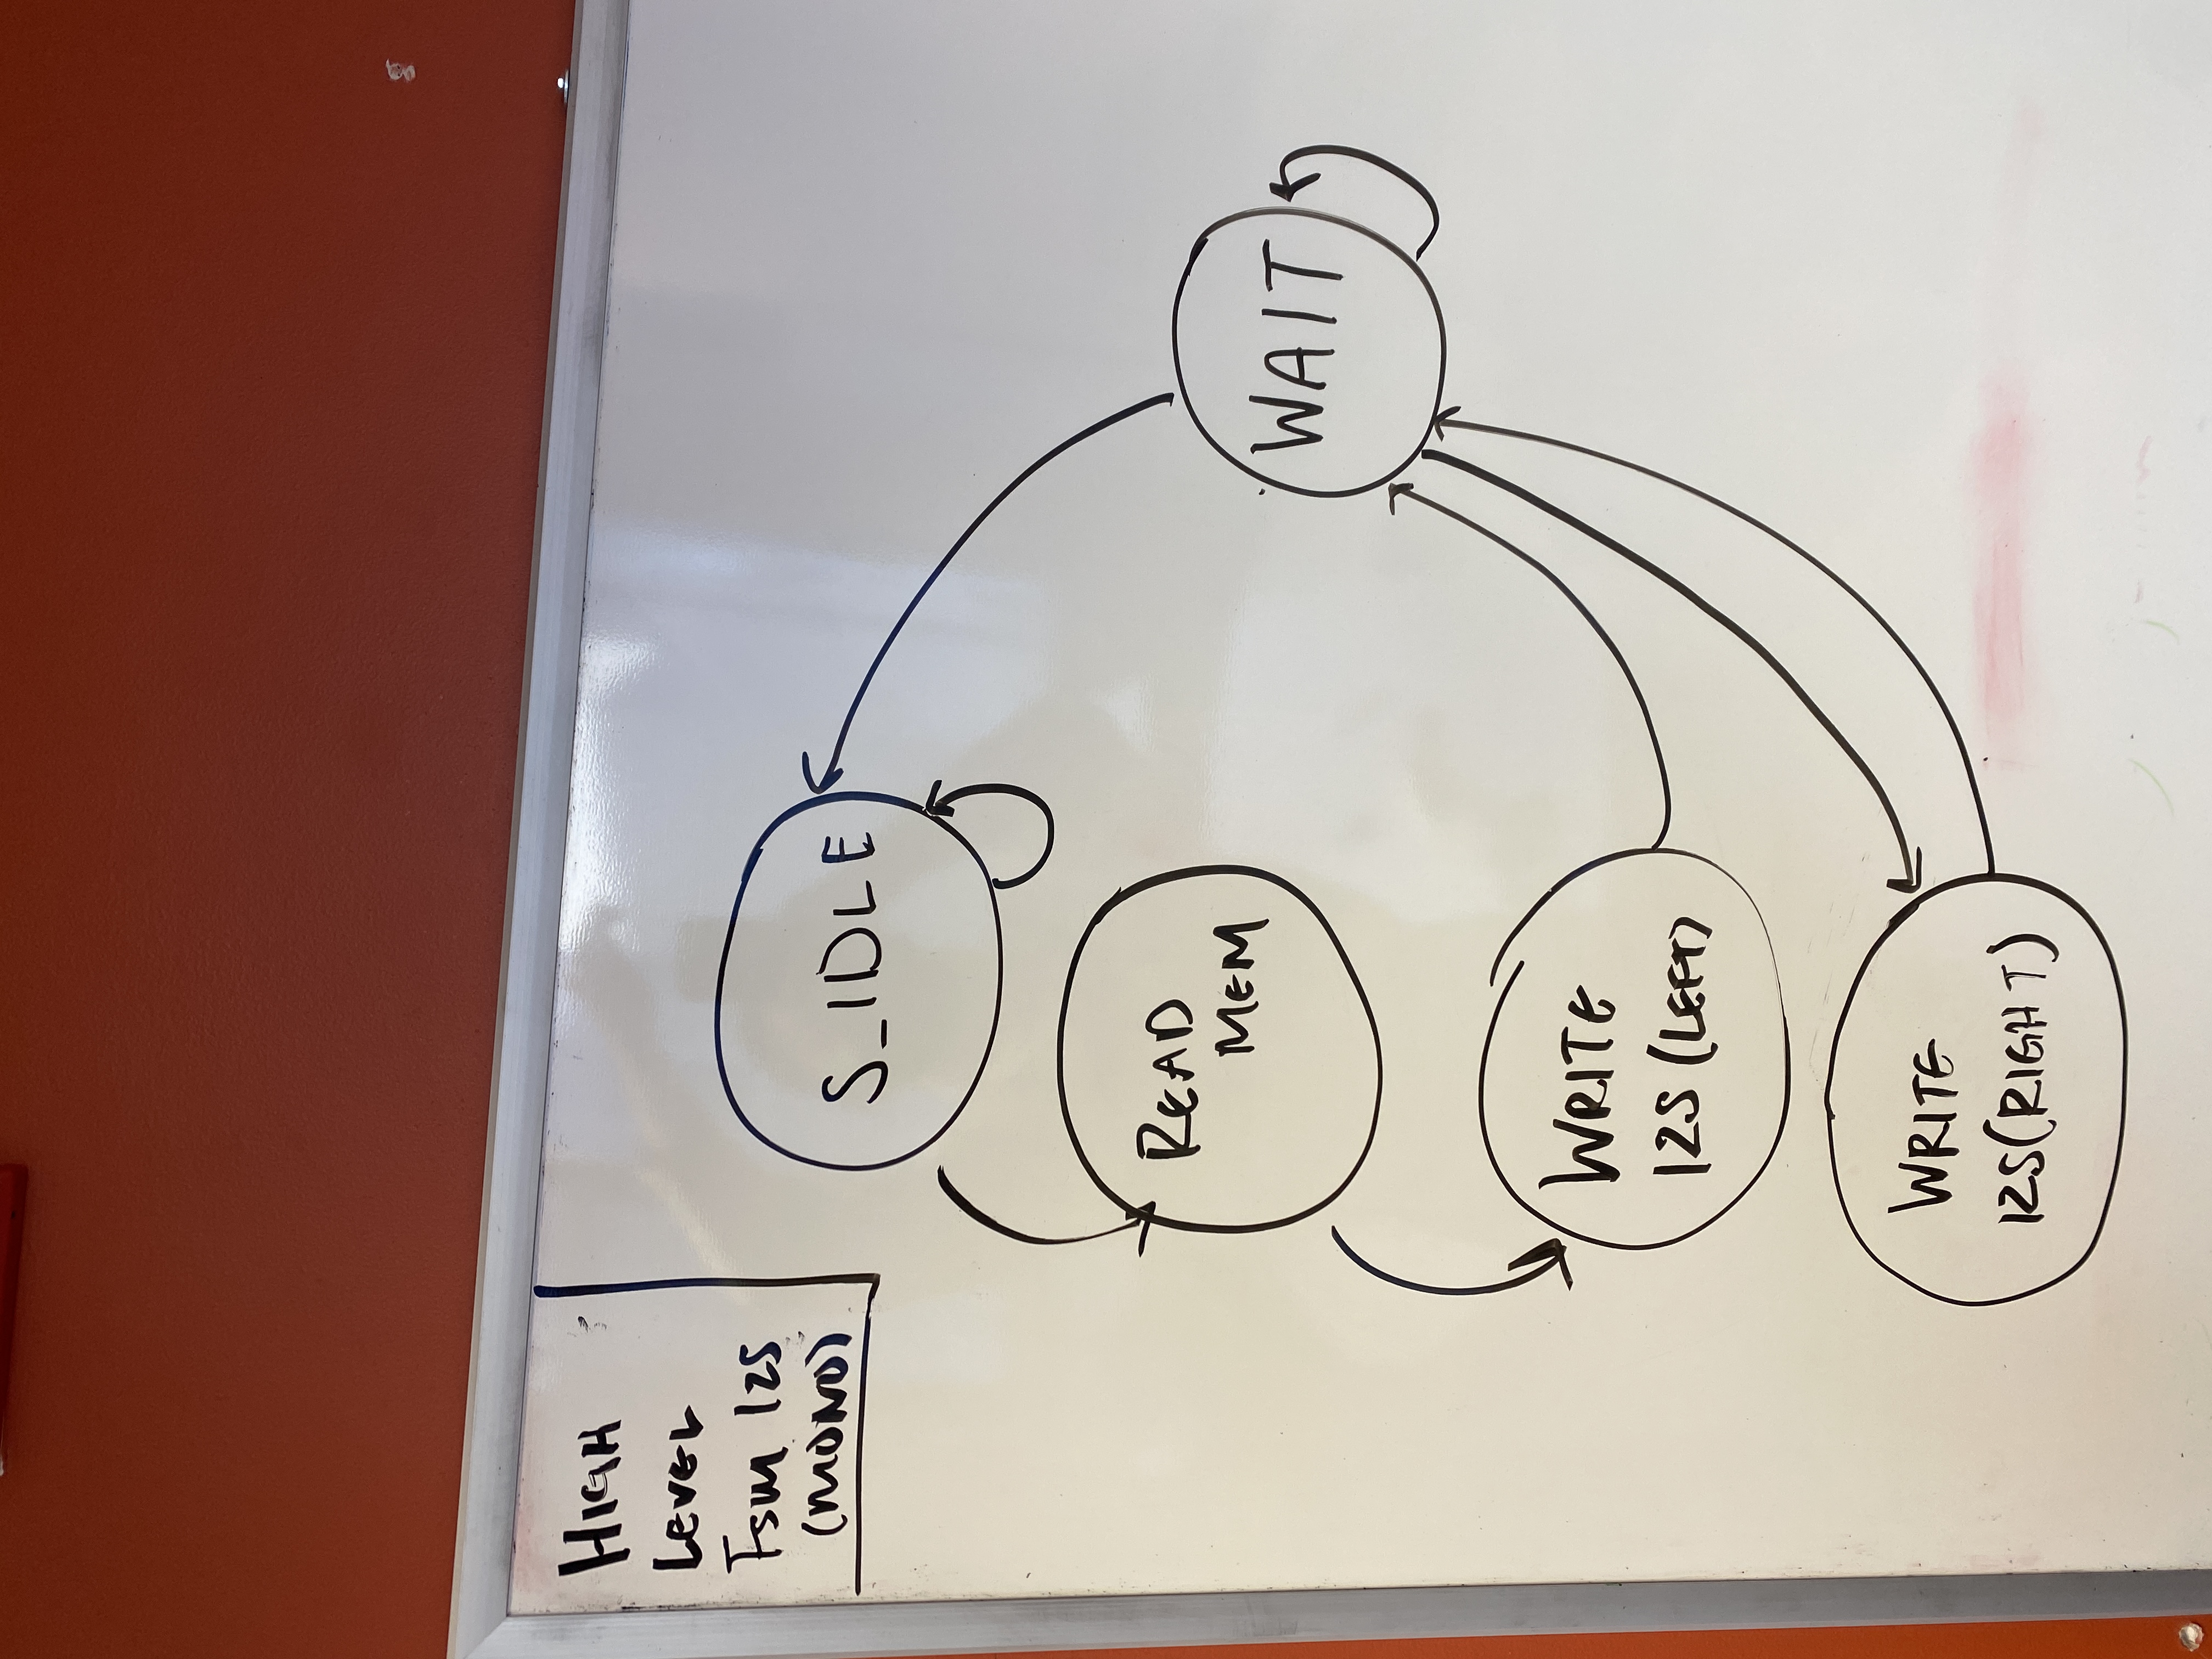 HIGH
LEVEL
FSM I2S
(MONO)
S_IDLE
READ
MEM
WAIT
WRITE
I2S (LEFT)
WRITE
I2S (RIGHT)